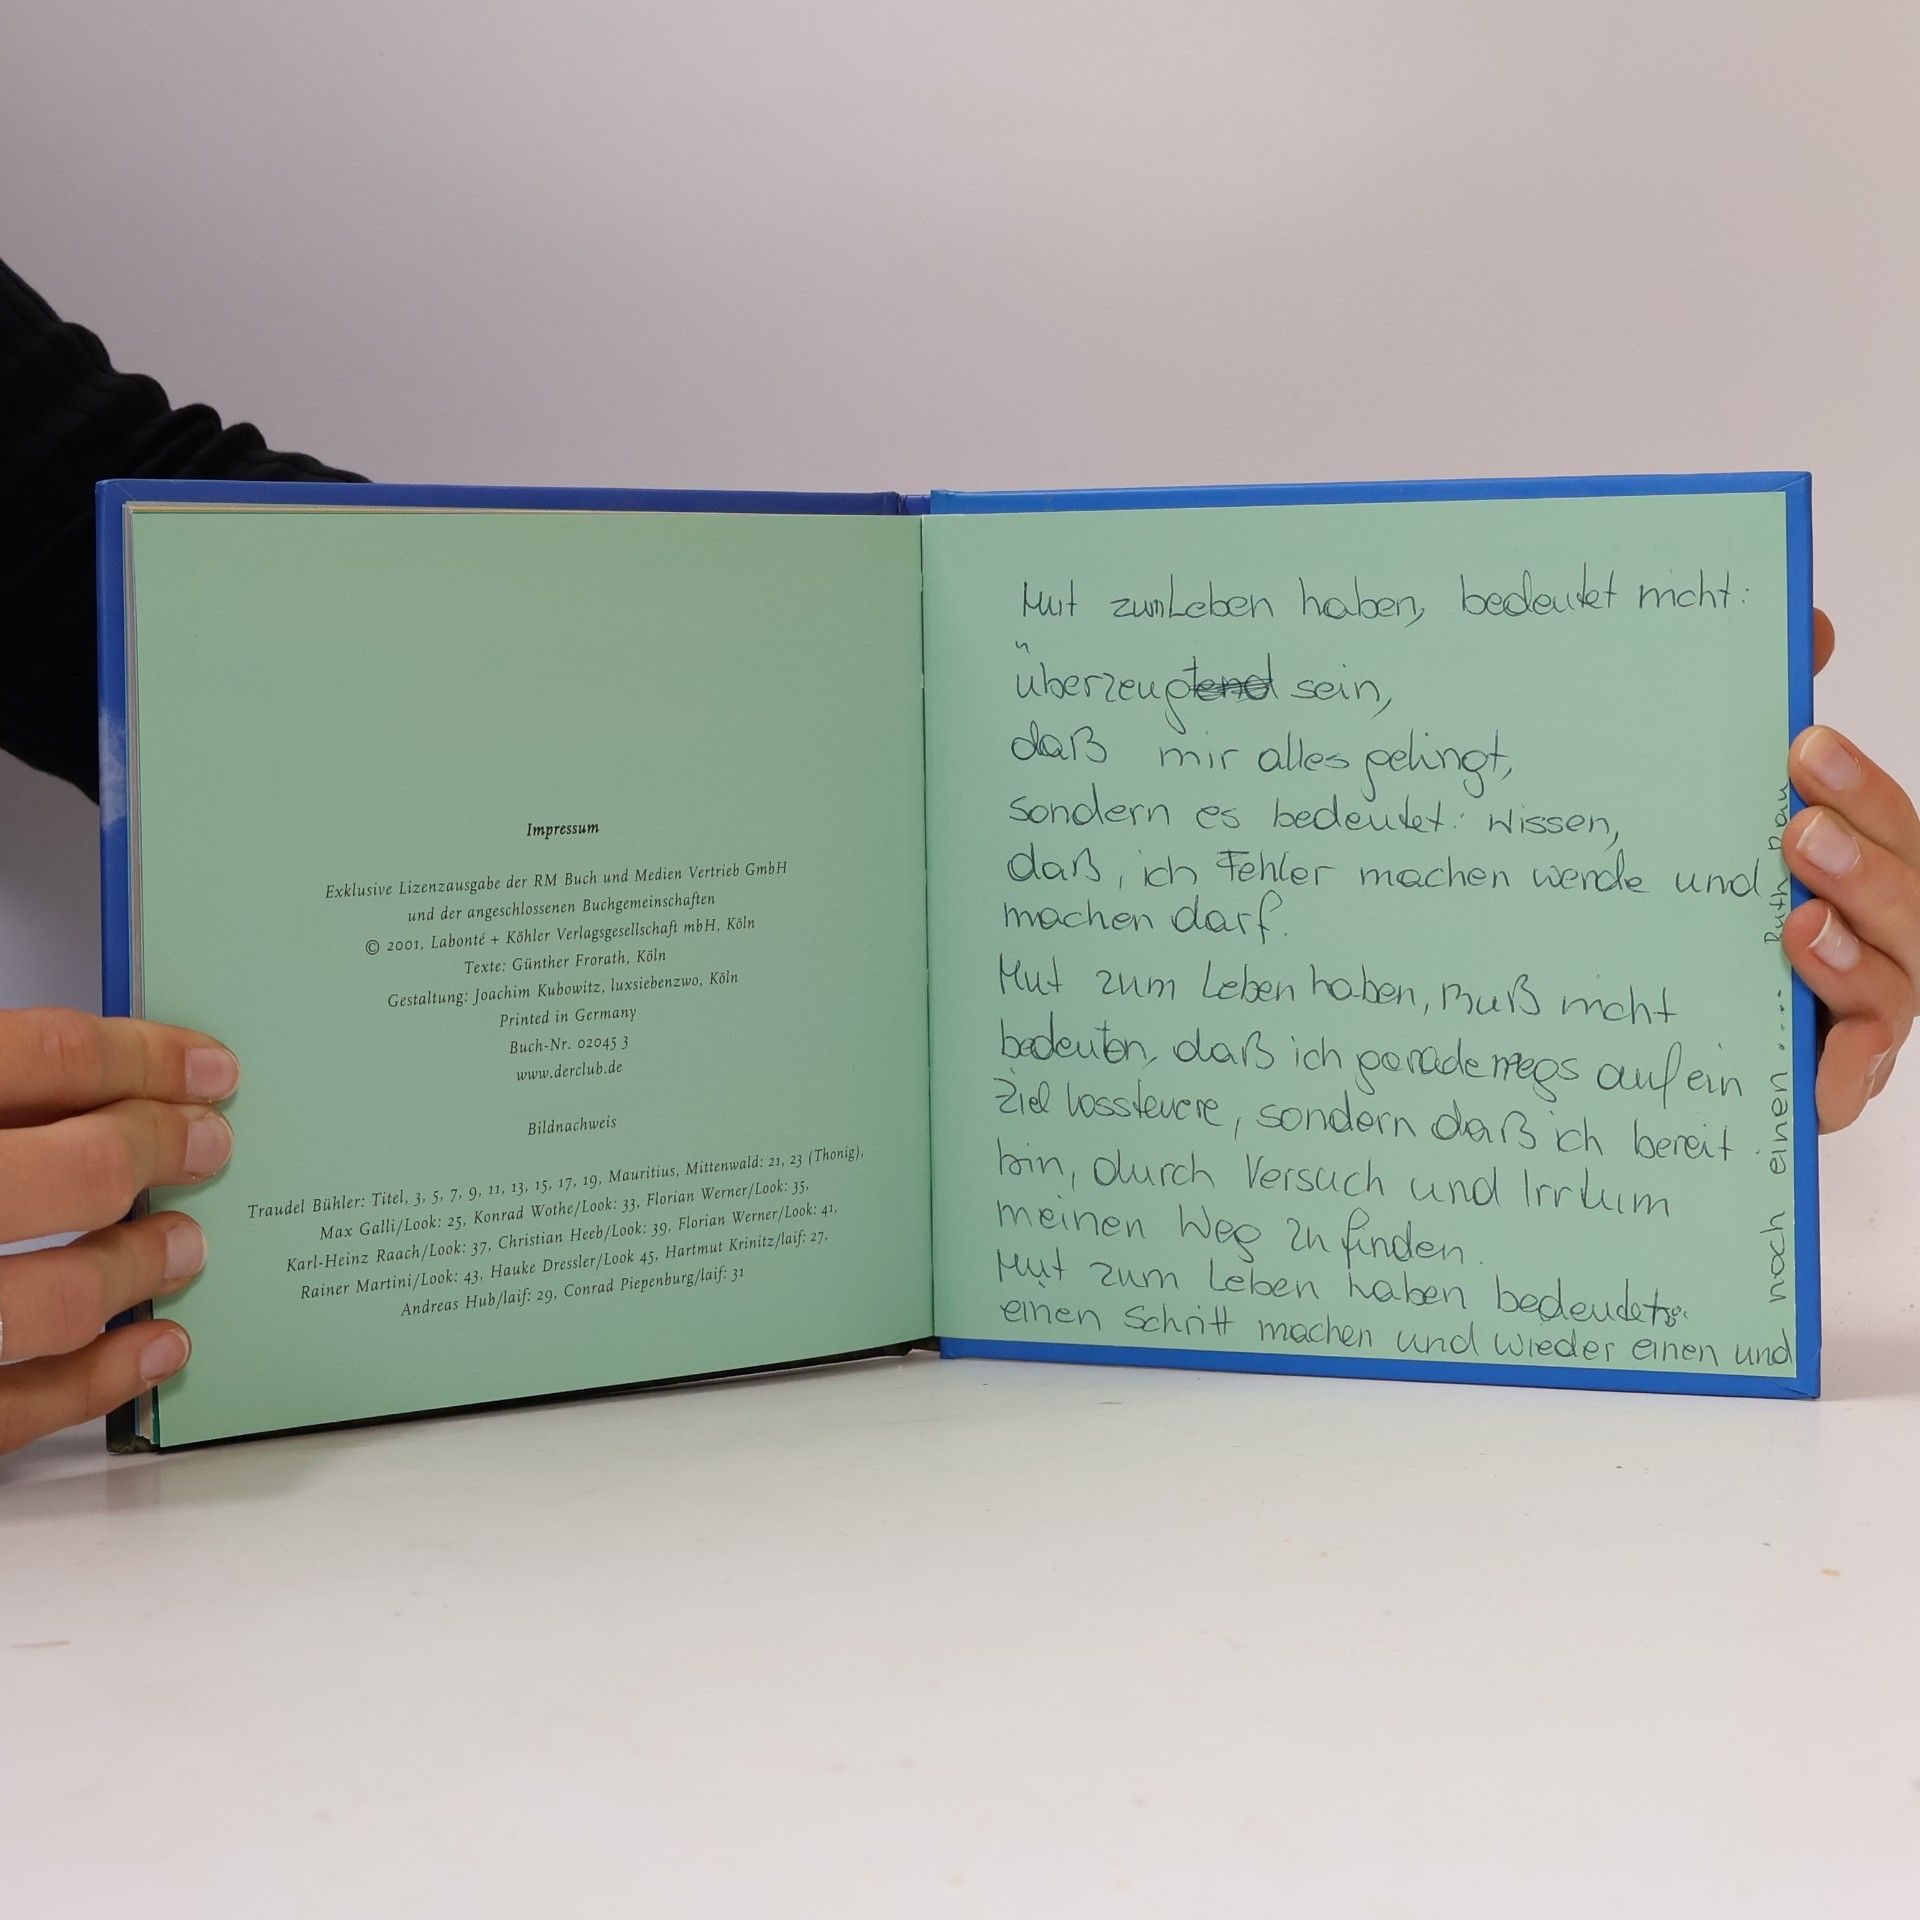 Impressum
Exklusive Lizenzausgabe der RM Buch und Medien Vertrieb GmbH
und der angeschlossenen Buchgemeinschaften
© 2001, Labonté + Köhler Verlagsgesellschaft mbH, Köln
Texte: Günther Frorath, Köln
Gestaltung: Joachim Kubowitz, luxsiebenzwo, Köln
Printed in Germany
Buch-Nr. 02045 3
www.derclub.de
Bildnachweis
Traudel Bühler: Titel, 3, 5, 7, 9, 11, 13, 15, 17, 19, Mauritius, Mittenwald: 21, 23 (Thonig),
Max Galli/Look: 25, Konrad Wothe/Look: 33, Florian Werner/Look: 35,
Karl-Heinz Raach/Look: 37, Christian Heeb/Look: 39, Florian Werner/Look: 41,
Rainer Martini/Look: 43, Hauke Dressler/Look 45, Hartmut Krinitz/laif: 27,
Andreas Hub/laif: 29, Conrad Piepenburg/laif: 31
Mut zum Leben haben, bedeutet nicht:
überzeugt sein,
daß mir alles gelingt,
sondern es bedeutet: wissen,
daß, ich Fehler machen werde und
machen darf.
Mut zum Leben haben, muß nicht
bedeuten, daß ich geradewegs auf ein
Ziel lossteuere, sondern daß ich bereit
bin, durch Versuch und Irrtum
meinen Weg zu finden.
Mut zum Leben haben bedeutet:
einen Schritt machen und wieder einen und
noch einen .... Ruth Rau